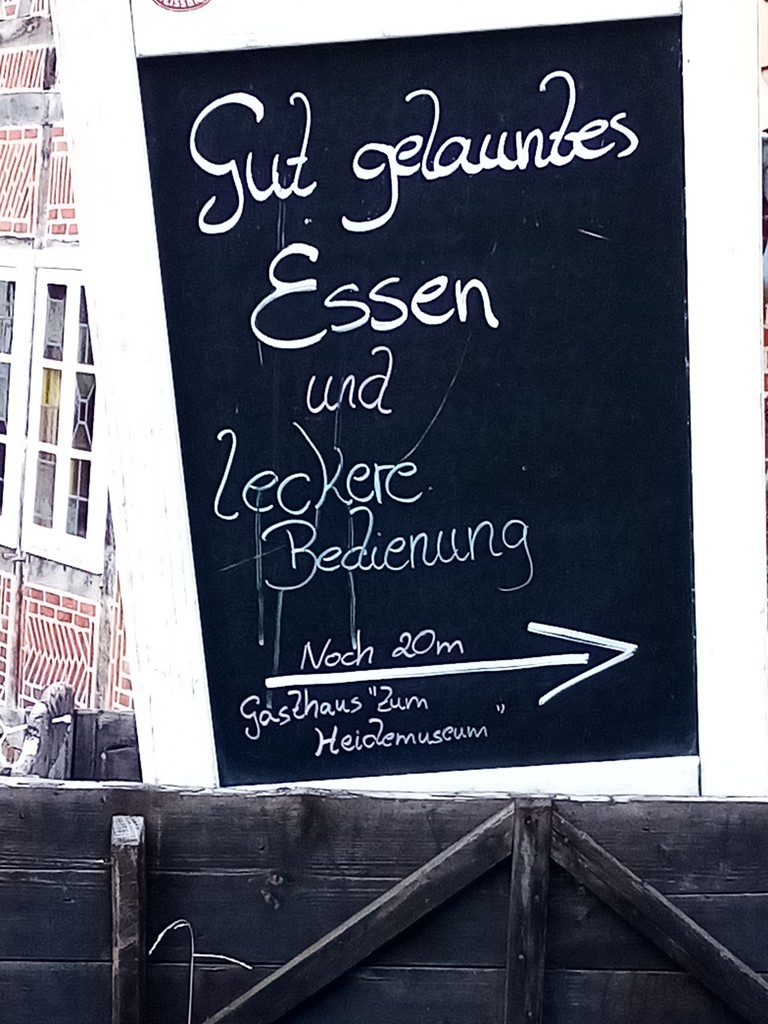 Gut gelauntes
Essen
und
leckere
Bedienung
Noch 20m
Gasthaus "Zum
Heidemuseum"